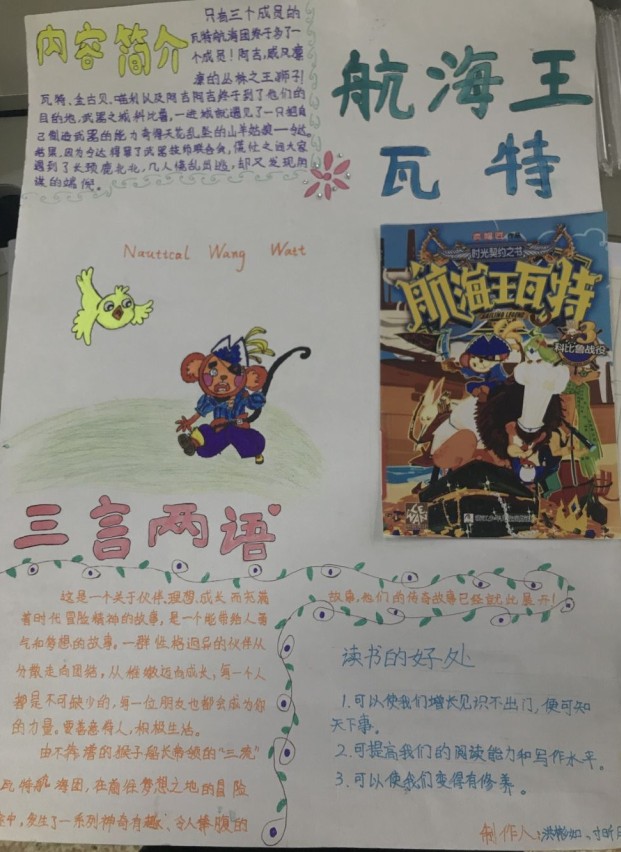 内容简介
只有三个成员的
瓦特航海团终于多了一
个成员！阿吉，威风凛
凛的丛林之王狮子！
瓦特、金古贝、以及阿吉阿吉终于到了他们的
目的地，武器之城科比鲁，一进城就遇见了一只把自
己制造武器的能力夸得天花乱坠的山羊姑娘——今达
因为今达得罪了武器技师联合会，慌忙之间大家
遇到了长颈鹿北北，几人慌乱出逃，却又发现阴
谋的端倪。
航海王
瓦特
Nautical Wang Watt
时光契约之书
航海王瓦特
SAILING LEGEND
3
科比鲁战役
三言两语
这是一个关于伙伴、理想、成长而充满
着时代冒险精神的故事，是一个能带给人勇
气和梦想的故事。一群性格迥异的伙伴从
分散走向团结，从稚嫩迈向成长，每一个人
都是不可缺少的，每一位朋友也都会成为你
的力量。要善意待人，积极生活。
由不靠谱的猴子船长带领的“三流”
瓦特航海团，在前往梦想之地的冒险
途中，发生了一系列神奇有趣、令人捧腹的
故事，他们的传奇故事已经就此展开！
读书的好处
1.可以使我们增长见识不出门，便可知
天下事。
2.可提高我们的阅读能力和写作水平。
3.可以使我们变得有修养。
制作人：洪